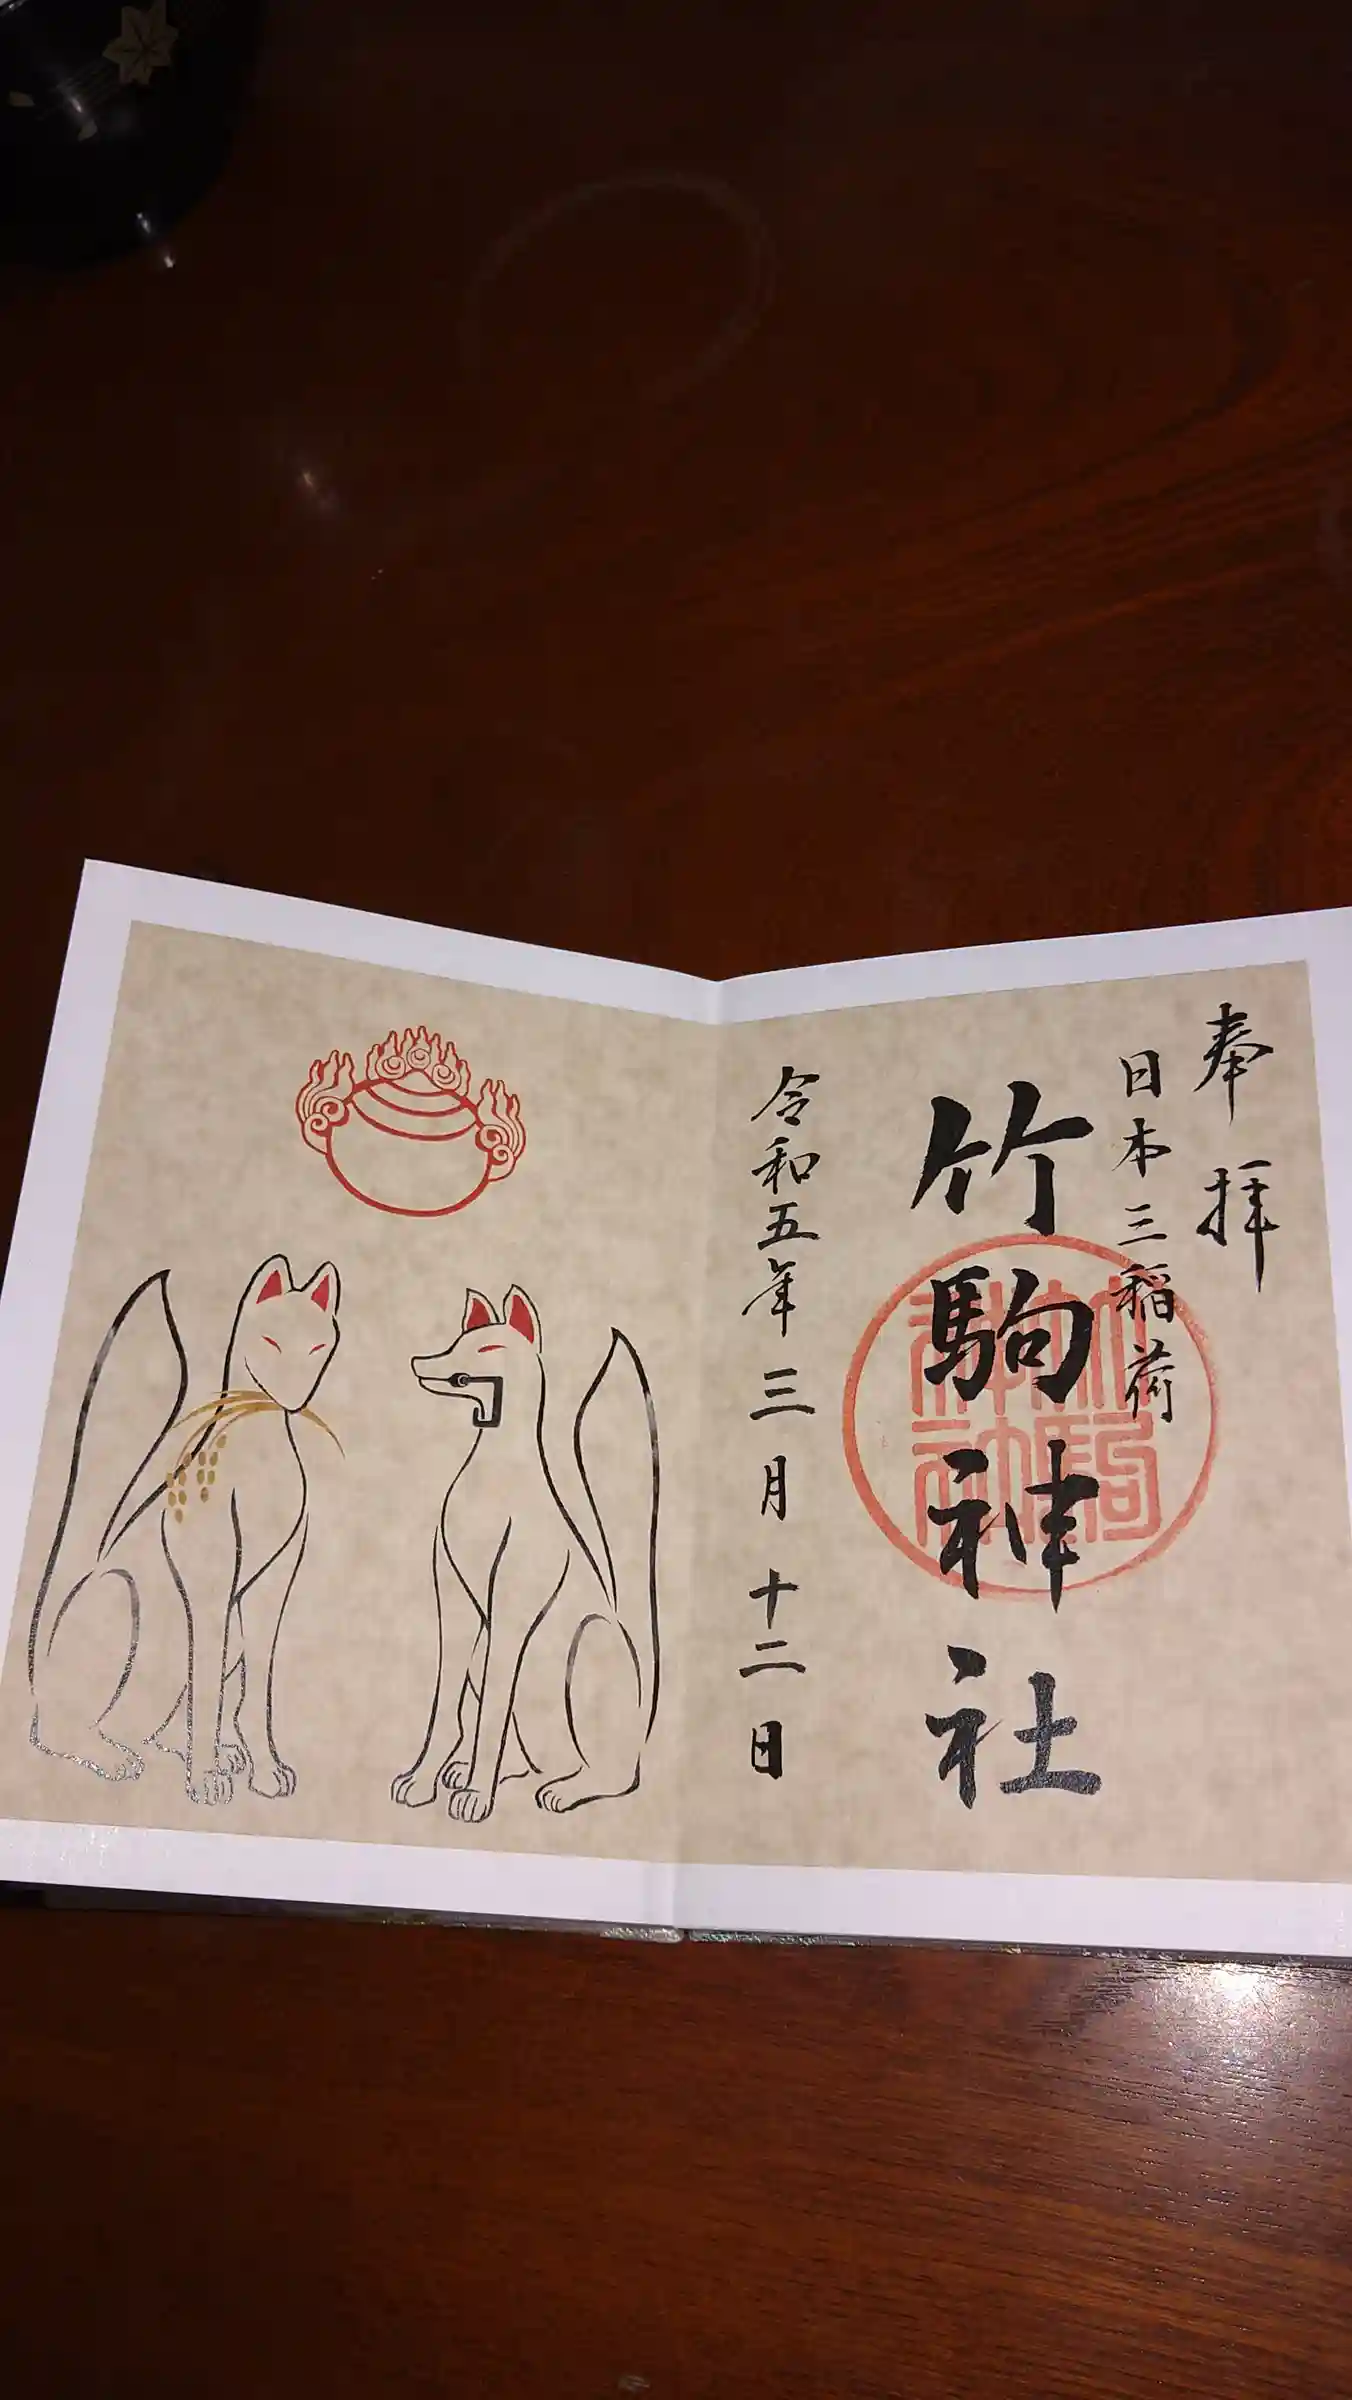 奉拝
日本三稲荷
竹駒神社
竹駒神社
令和五年三月十二日